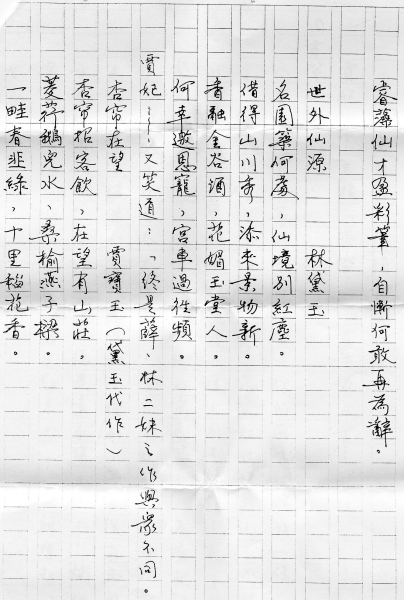 睿藻仙才盈彩筆，自慚何敢再為辭。
世外仙源　林黛玉
名園築何處，仙境別紅塵。
借得山川秀，添來景物新。
香融金谷酒，花媚玉堂人。
何幸邀恩寵，宮車過往頻。
賈妃……又笑道：「終是薛、林二妹之作與眾不同。
杏帘在望　賈寶玉（黛玉代作）
杏帘招客飲，在望有山莊。
菱荇鵝兒水，桑榆燕子樑。
一畦春韭綠，十里稻花香。